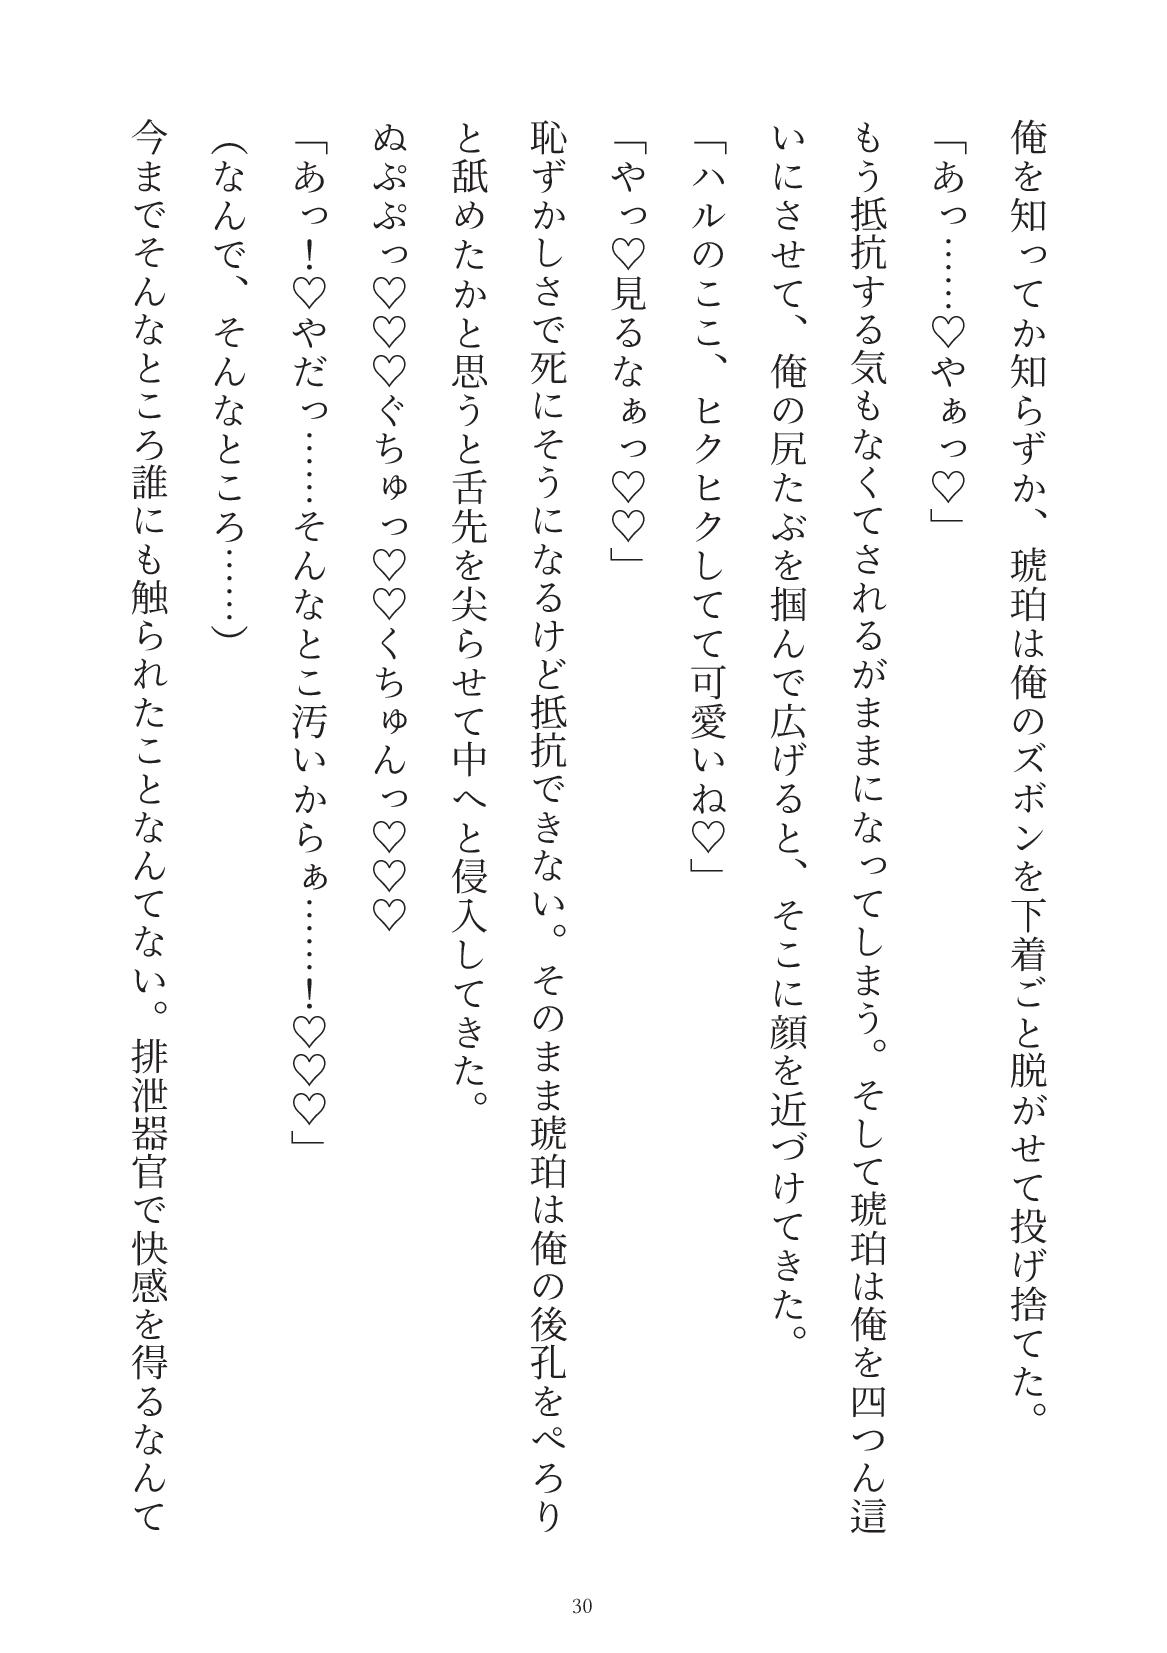 俺を知ってか知らずか、琥珀は俺のズボンを下着ごと脱がせて投げ捨てた。
「あっ……♡やぁっ♡」
もう抵抗する気もなくてされるがままになってしまう。そして琥珀は俺を四つん這
いにさせて、俺の尻たぶを掴んで広げると、そこに顔を近づけてきた。
「ハルのここ、ヒクヒクしてて可愛いね♡」
「やっ♡見るなぁっ♡♡」
恥ずかしさで死にそうになるけど抵抗できない。そのまま琥珀は俺の後孔をぺろり
と舐めたかと思うと舌先を尖らせて中へと侵入してきた。
ぬぷぷっ♡♡♡ぐちゅっ♡♡くちゅんっ♡♡♡
「あっ！♡やだっ……そんなとこ汚いからぁ……！♡♡♡」
（なんで、そんなところ……）
今までそんなところ誰にも触られたことなんてない。排泄器官で快感を得るなんて
30